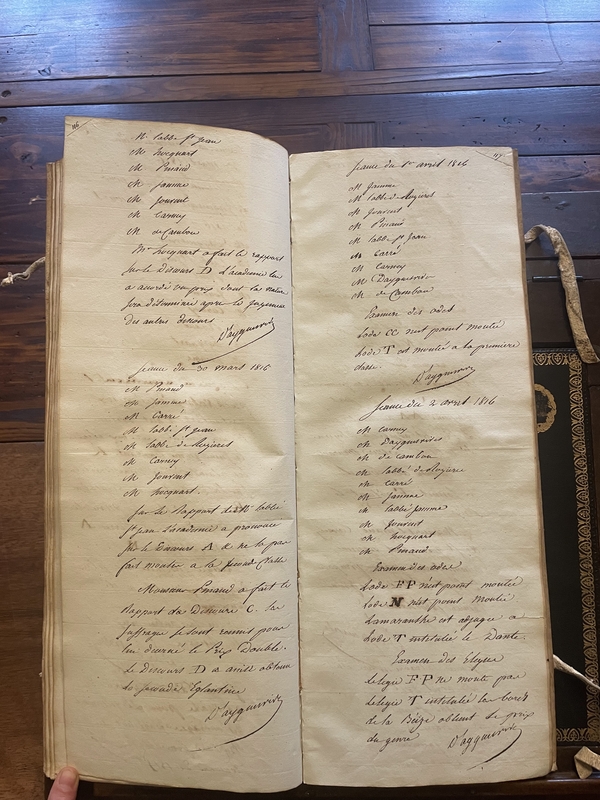 116
M. labbé St Jean
M. hocquart
M. Pinaud
M. jamme
M. jouvent
M. Carney
M. de Cambon
Mr hocquart a fait le rapport
sur le Discours D l'academie lui
a accordé un prix dont la nature
sera déterminée après le jugement
des autres discours
D'ayguesvives
seance du 30 mars 1816
M. Pinaud
M. jamme
M. Carré
M. labbé St jean
M. labbé de Rozieres
M. Carney
M. jouvent
M. hocquart.
sur le rapport de Mr labbé
St jean l'academie a prononcé
sur le Discours A de ne le pas
faire monter a la seconde Classe
Monsieur Pinaud a fait le
Rapport du Discours C. les
suffrages se sont reunis pour
lui decerné le Prix Double.
Le Discours D a ainsi obtenu
la seconde Eglantine
D'ayguesvives
117
seance du 1er avril 1816
M. jamme
M. labbé de Rozieres
M. jouvent
M. Pinaud
M. labbé St jean
M. Carré
M. Carney
M. D'ayguesvives
M. de Cambon
Examen des odes
Lode CC n'est point montée
Lode T est montée a la premiere
classe.
D'ayguesvives
seance du 2 avril 1816
M. Carney
M. Dayguesvives
M. de cambon
M. labbé de Rozieres
M. Carré
M. jamme
M. labbé jamme
M. jouvent
M. hocquart
M. Pinaud
Examen des odes
Lode FF n'est point montée
Lode N n'est point Montée
Lamaranthe est adjugée a
Lode T intitulée le Dante.
Examen des Elegies
Lelegie FF ne monte pas
Lelegie T intitulée les bords
de la obtient le prix
du genre
D'ayguesvives